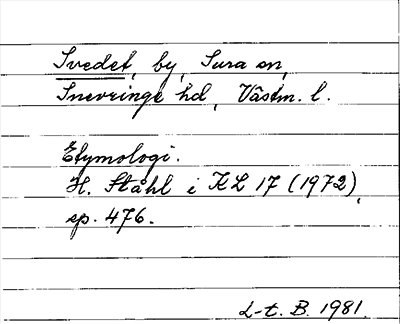 Svedet, by, Sura sn,
Snevringe hd, Västm. l.
Etymologi.
H. Ståhl i KL 17 (1972),
sp. 476.
L-t. B. 1981.